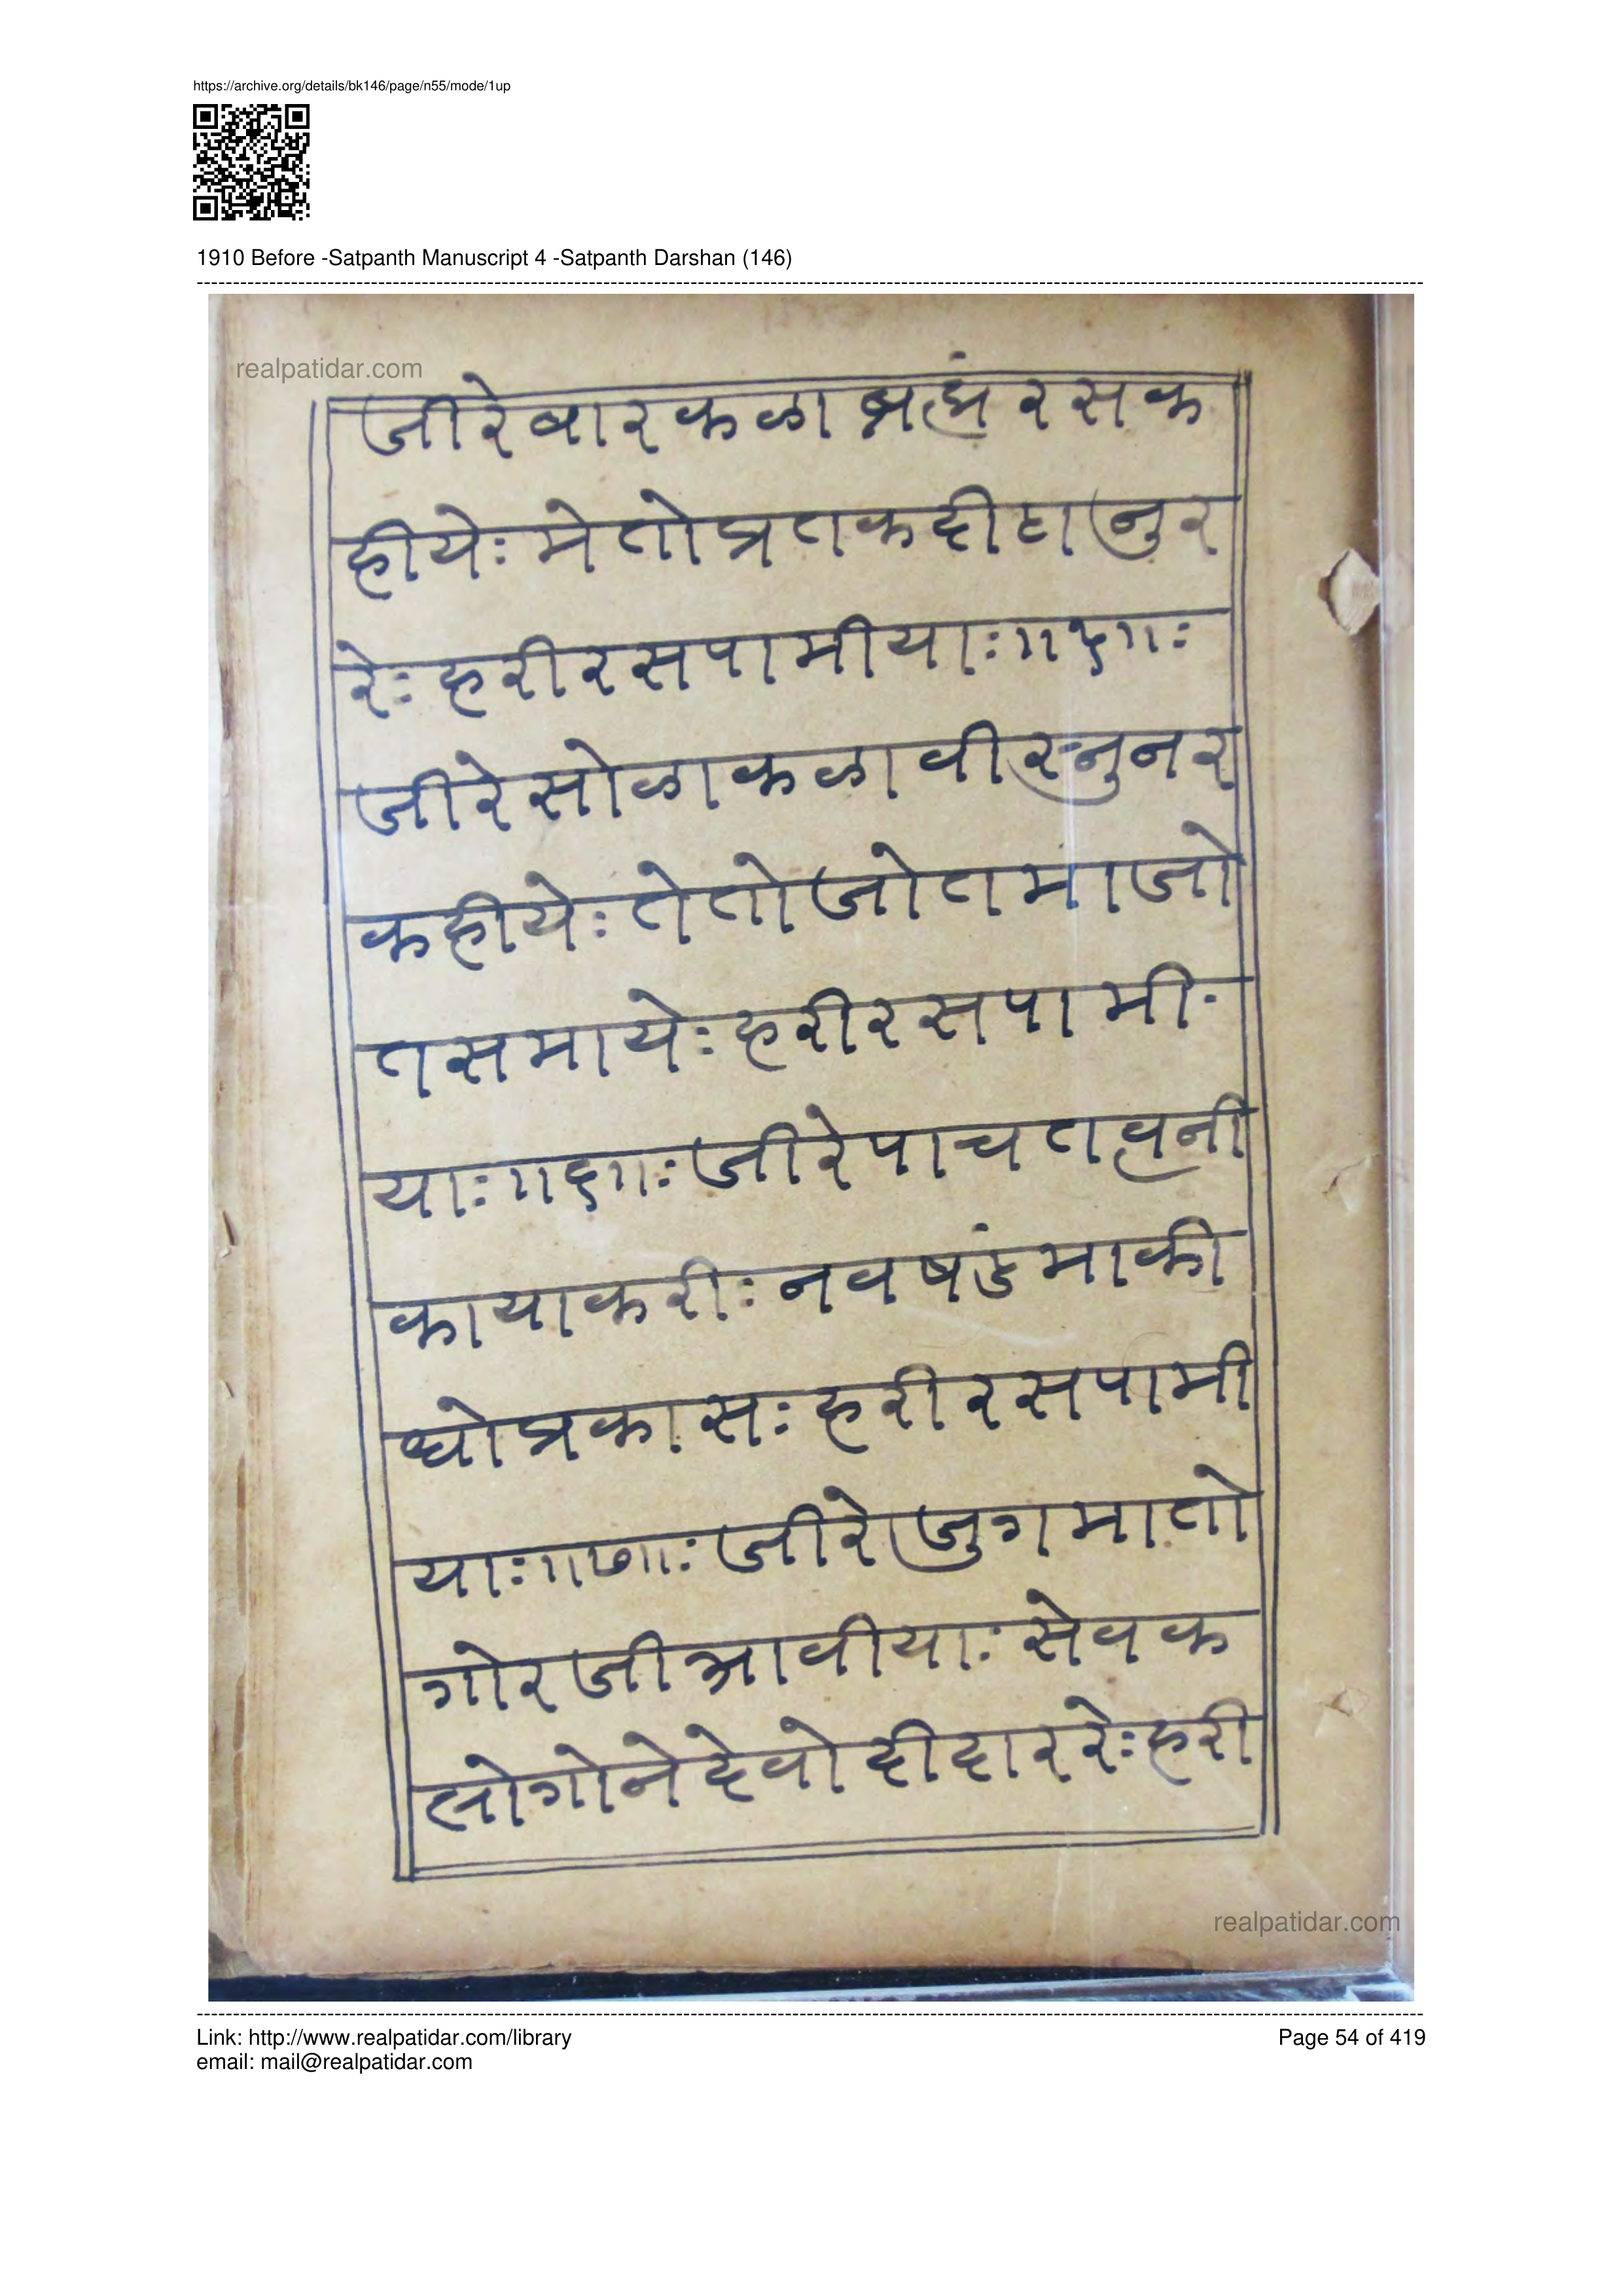 https://archive.org/details/bk146/page/n55/mode/1up
1910 Before -Satpanth Manuscript 4 -Satpanth Darshan (146)
realpatidar.com
जीरेबारकळा ब्रह्मं रसक
हीयेः मेतोप्रतकदीठा नुर
रेः हरीरसपामीयाः॥५॥ः
जीरेसोळाकळावीरनुनर
कहीयेः तेतोजोतमाजो
तसमायेः हरीरसपामी-
याः॥६॥ः जीरेपाचतत्वनी
कायाकरीः नवषंडमाकी
धोप्रकासः हरीरसपामी
याः॥७॥ः जीरेजुगमातो
गोरजीआवीयाः सेवक
लोगोनेदेवोदीदाररेः हरी
realpatidar.com
Link: http://www.realpatidar.com/library
Page 54 of 419
email: mail@realpatidar.com